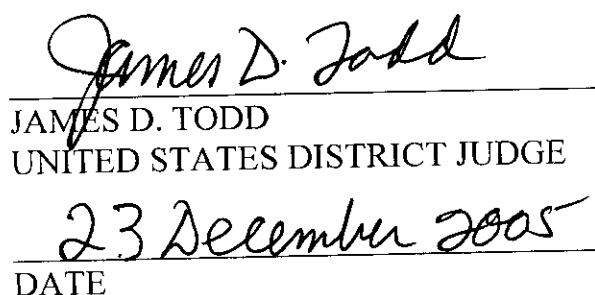 James D. Todd
JAMES D. TODD
UNITED STATES DISTRICT JUDGE
23 December 2005
DATE